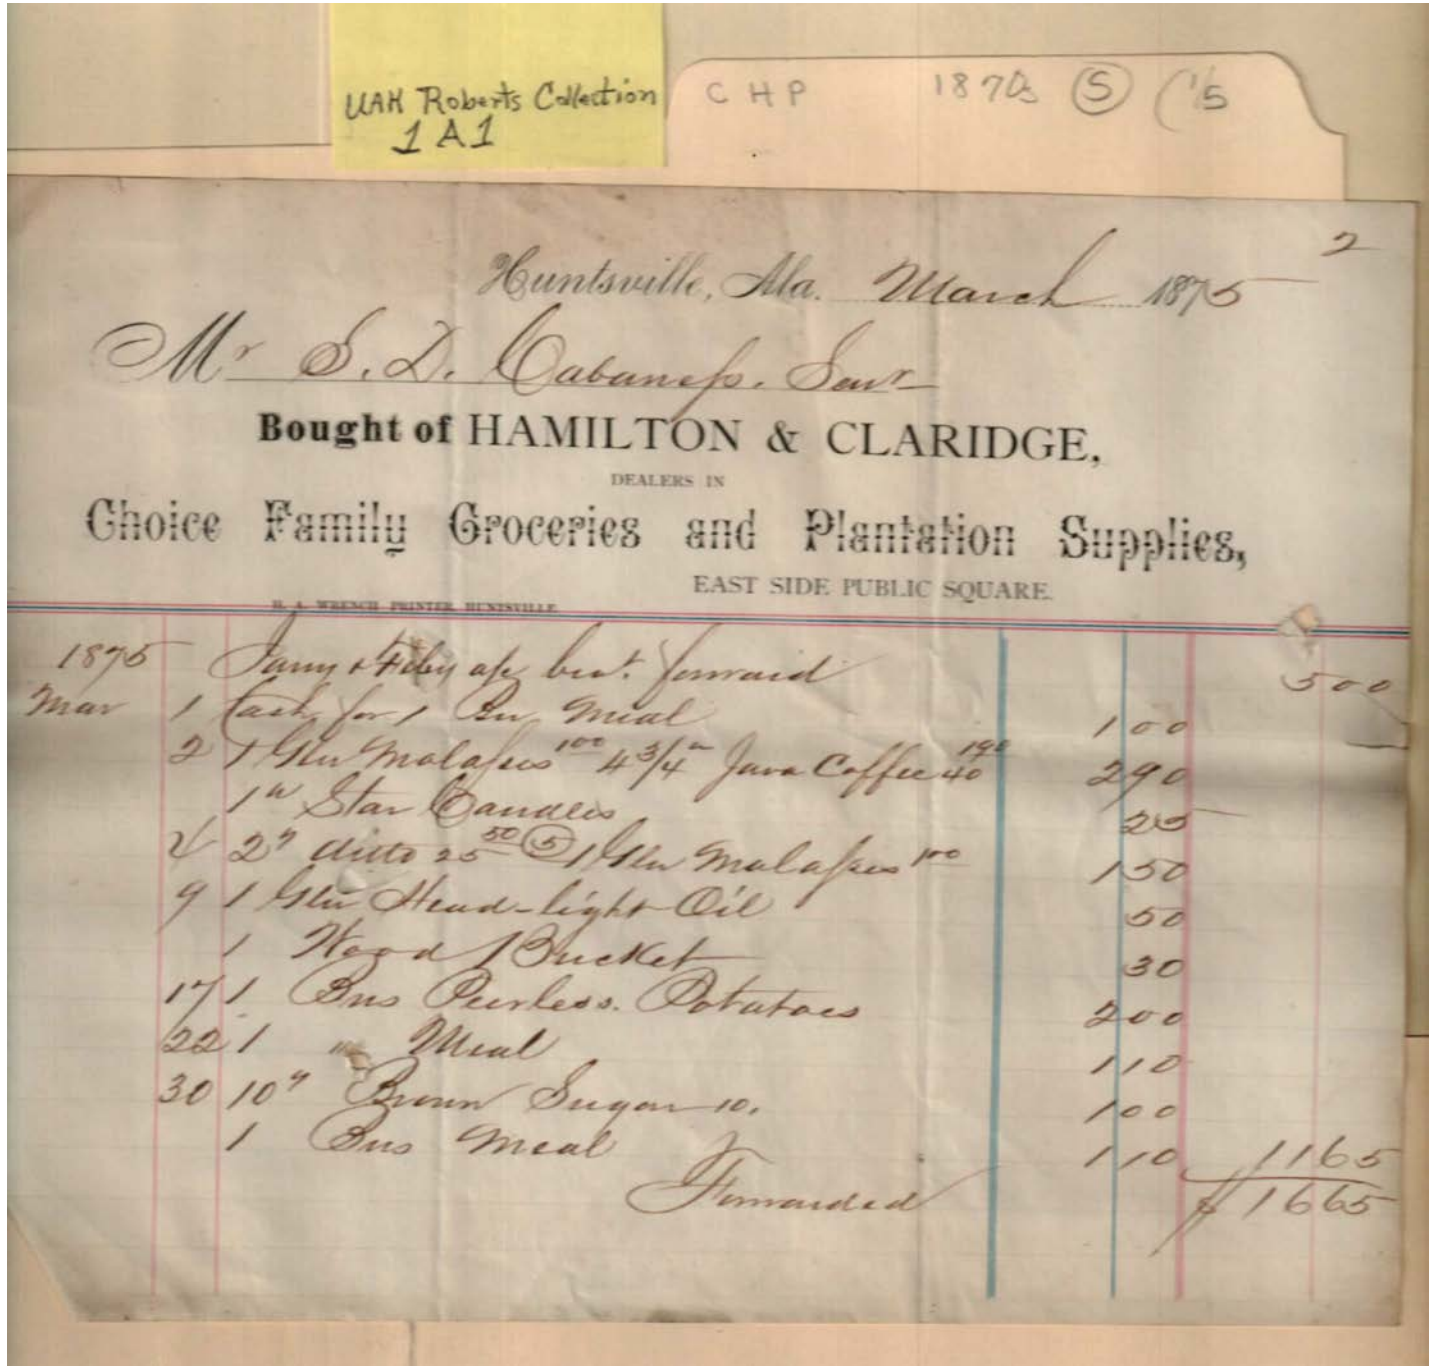 UAH Roberts Collection
1 A 1
C H P 1870s (5) (1/5
2
Huntsville, Ala. March 1875
Mr S. D. Cabaness. Senr
Bought of HAMILTON & CLARIDGE,
DEALERS IN
Choice Family Groceries and Plantation Supplies,
EAST SIDE PUBLIC SQUARE.
H. A. WRENCH PRINTER HUNTSVILLE
1875 Jany & Feby a/c bro't. forward 500
Mar 1 Cash for 1 Bu Meal 100
2 1 Gln Molasses 100 4 3/4 " Java Coffee 40 190 290
1 " Star Candles 25
4 2 " ditto 25 50 (5) 1 Gln Molasses 100 150
9 1 Gln Head-light Oil 50
1 Wood Bucket 30
17 1 Bus Peerless. Potatoes 200
22 1 " Meal 110
30 10 " Brown Sugar 10. 100
1 Bus Meal 110 1165
Forwarded $ 1665